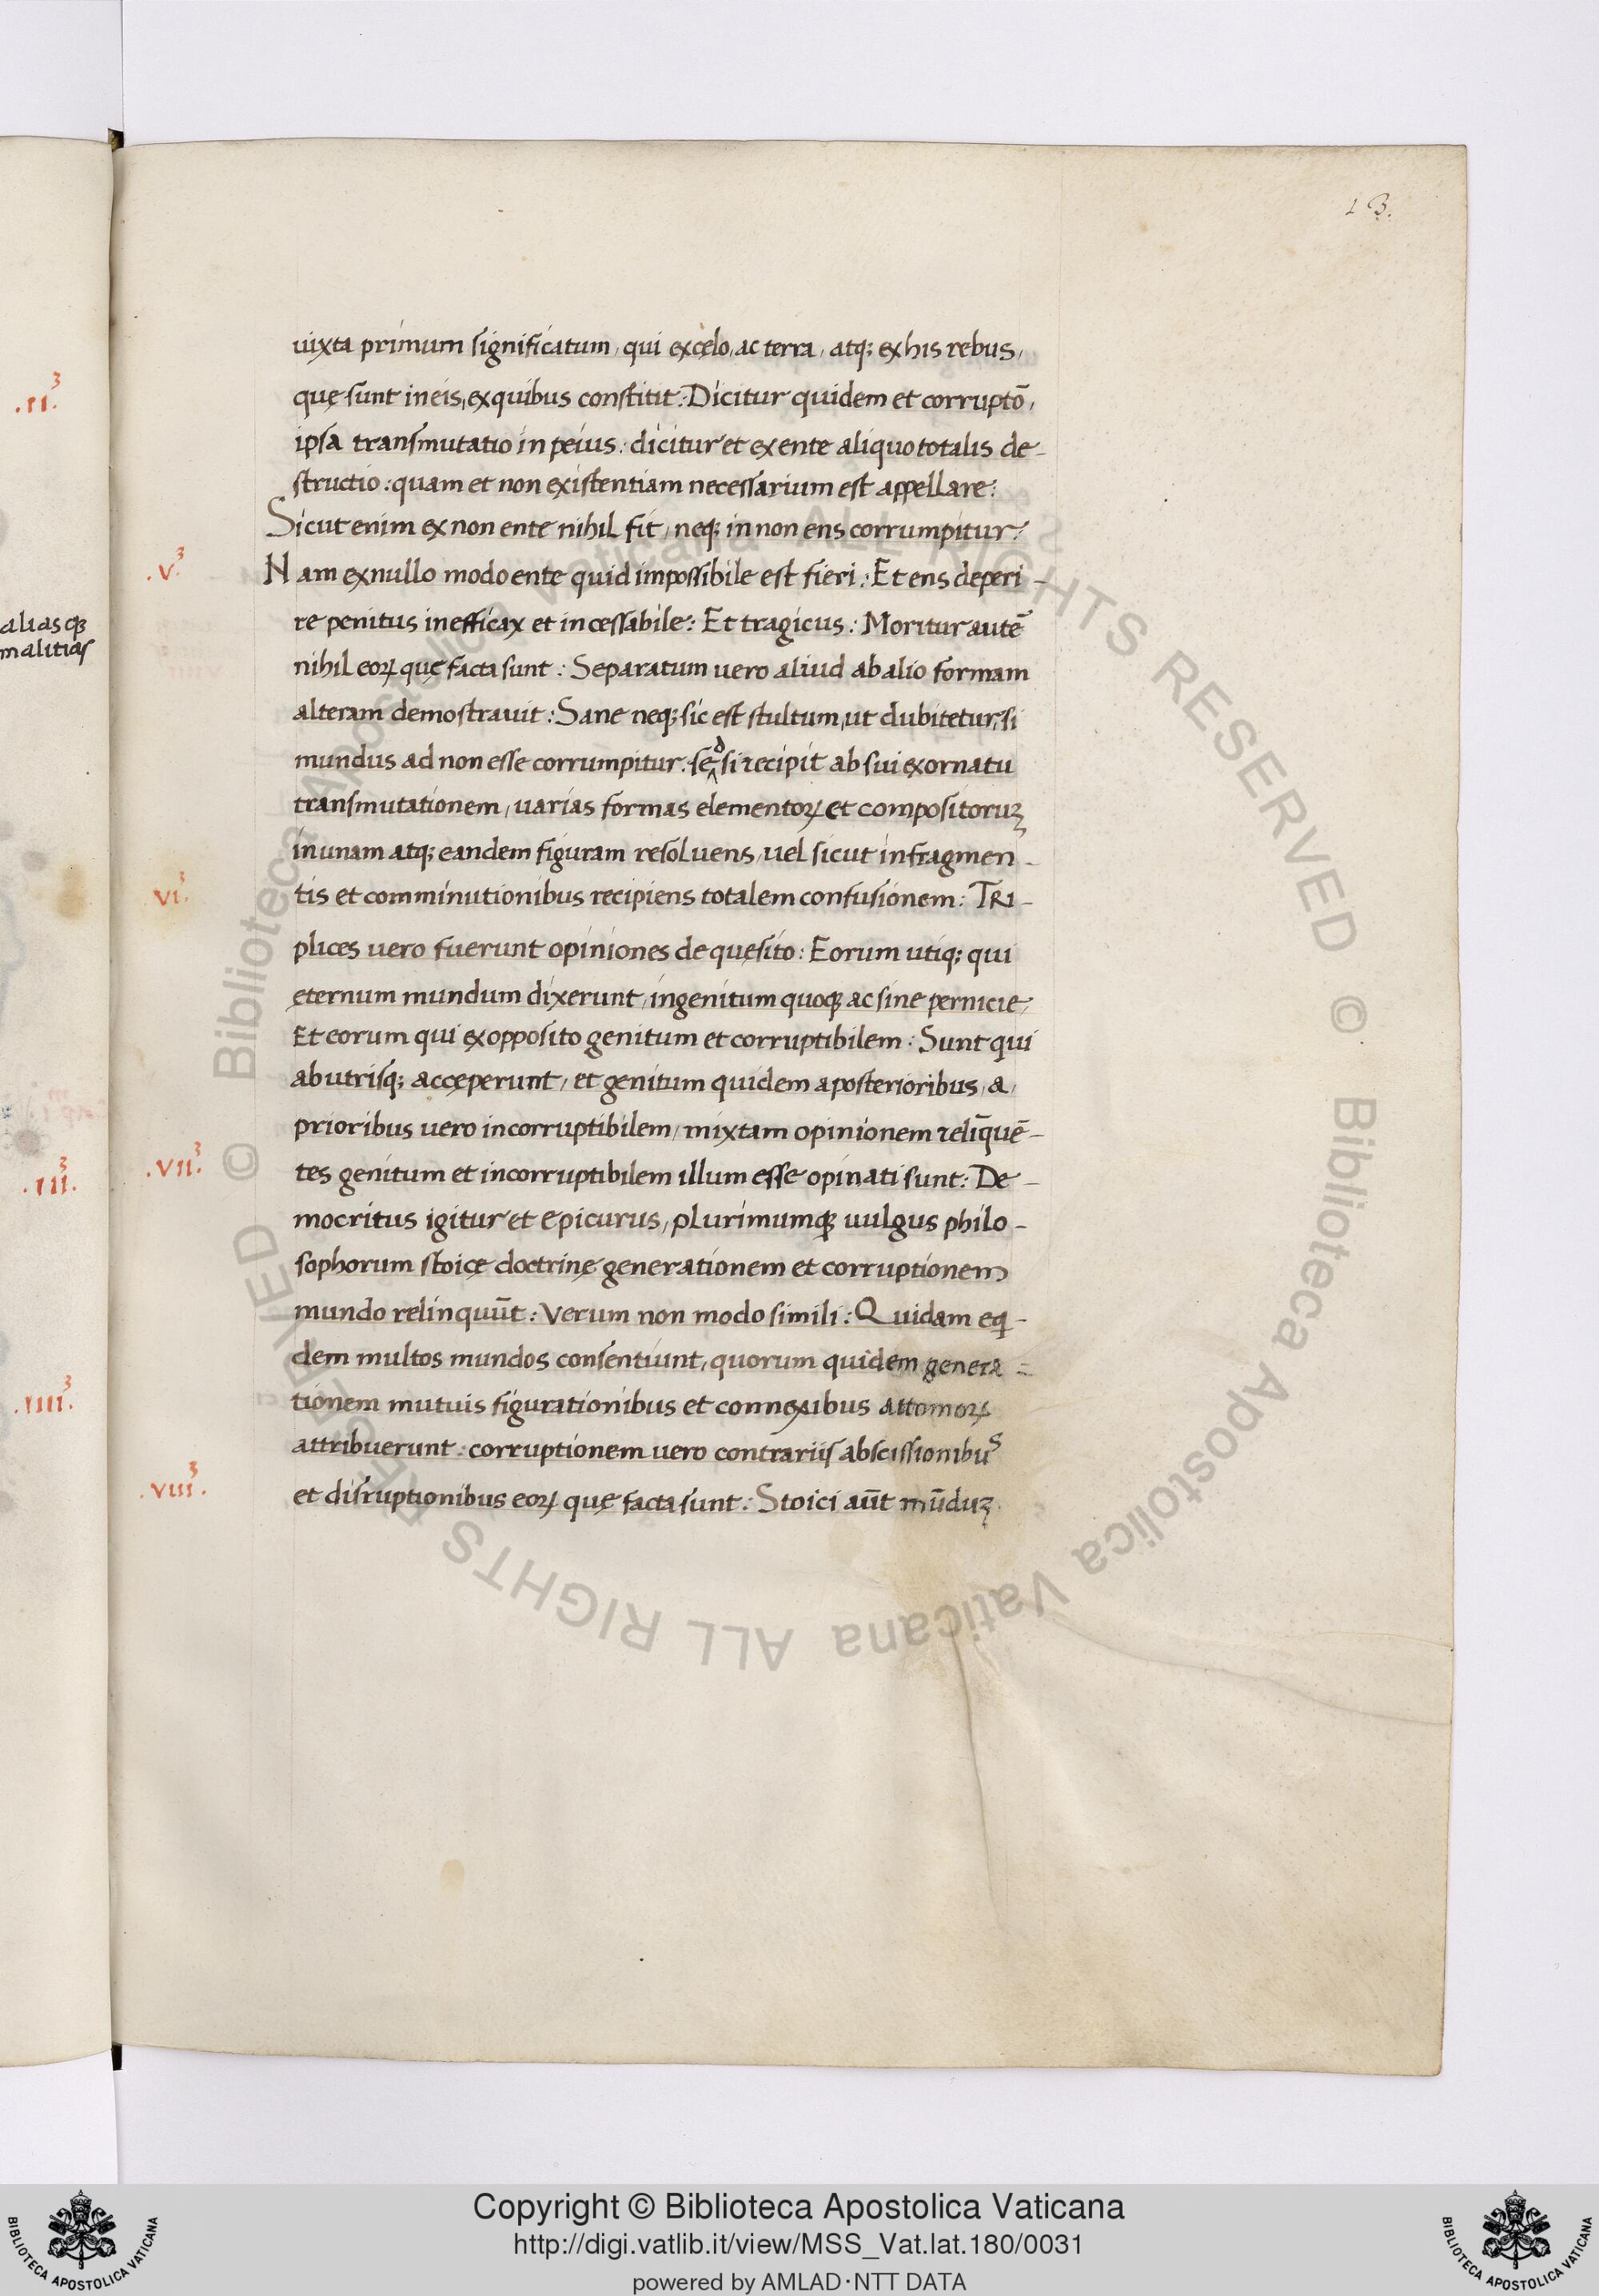 13.
uixta primum significatum, qui ex cęlo, ac terra, atq; ex his rebus,
quę sunt in eis, ex quibus constitit: Dicitur quidem et corruptō,
ipsa transmutatio in peius: dicitur et ex ente aliquo totalis de-
structio: quam et non existentiam necessarium est appellare:
Sicut enim ex non ente nihil fit, neq; in non ens corrumpitur:
.V.³
Nam ex nullo modo ente quid impossibile est fieri: Et ens deperi-
re penitus inefficax et incessabile: Et tragicus: Moritur autē
nihil eoꝝ quę facta sunt: Separatum vero aliud ab alio formam
alteram demostrauit: Sane neq; sic est stultum, ut dubitetur, si
mundus ad non esse corrumpitur. sed si recipit ab sui exornatu
transmutationem, uarias formas elementoꝝ et compositoruꝫ
in unam atq; eandem figuram resoluens, uel sicut in fragmen-
VI.³
tis et comminutionibus recipiens totalem confusionem: TRI-
plices vero fuerunt opiniones de quęsito: Eorum utiq; qui
ęternum mundum dixerunt, ingenitum quoqꝫ ac sine pernicie,
Et eorum qui ex opposito genitum et corruptibilem: Sunt qui
ab utrisq; accęperunt, et genitum quidem a posterioribus, a,
prioribus vero incorruptibilem, mixtam opinionem reliq̄uē-
.VII.³
tes genitum et incorruptibilem illum esse opinati sunt: De-
mocritus igitur et epicurus, plurimumqꝫ uulgus philo-
sophorum stoicę doctrinę generationem et corruptionem
mundo relinquūt: Verum non modo simili: Quidam eq-
dem multos mundos consentiunt, quorum quidem genera=
tionem mutuis figurationibus et connexibus attomoꝝ
attribuerunt: corruptionem vero contrariis abscissionibuˢ
.VIII³.
et disruptionibus eoꝝ quę facta sunt: Stoici aūt mūduꝫ
.II.³
alias qꝫ
malitias
.III.³
.IIII.³
© Biblioteca Apostolica Vaticana ALL RIGHTS RESERVED
© Biblioteca Apostolica Vaticana ALL RIGHTS RESERVED
Copyright © Biblioteca Apostolica Vaticana
http://digi.vatlib.it/view/MSS_Vat.lat.180/0031
powered by AMLAD·NTT DATA
BIBLIOTECA APOSTOLICA VATICANA
BIBLIOTECA APOSTOLICA VATICANA